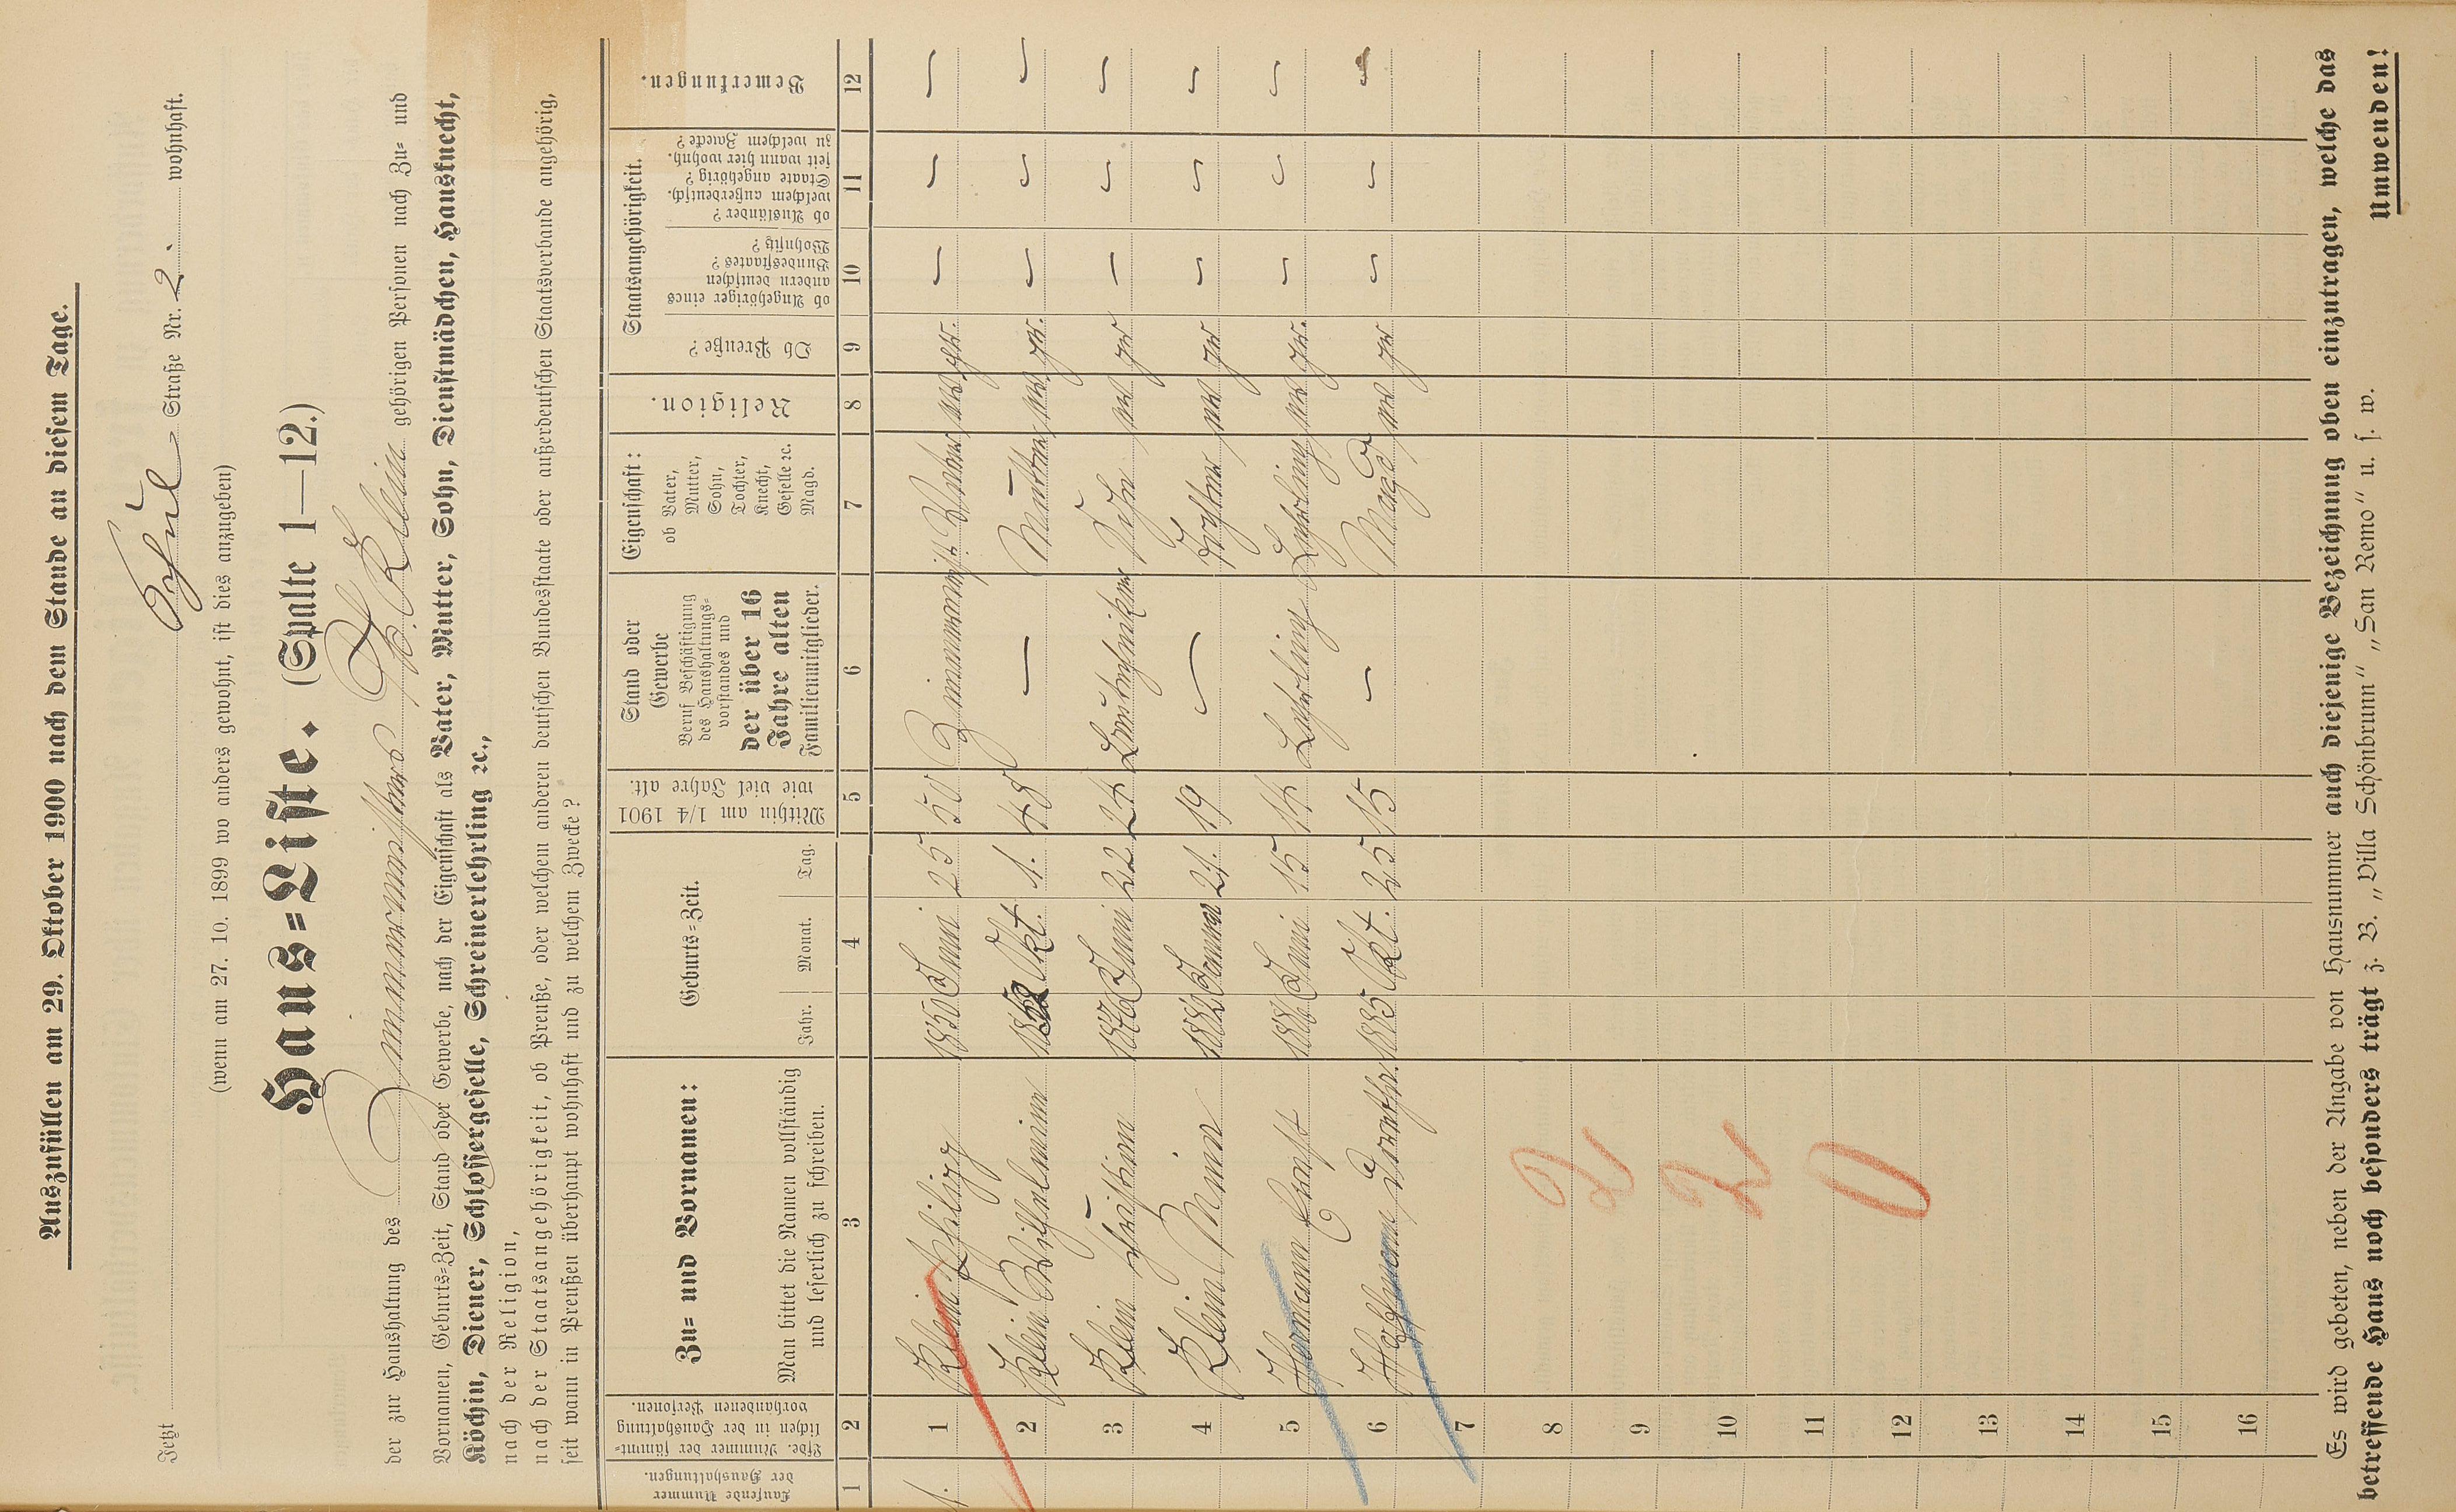 Auszufüllen am 29. Oktober 1900 nach dem Stande an diesem Tage.
Jetzt Straße Nr. 2. wohnhaft.
(wenn am 27. 10. 1899 wo anders gewohnt, ist dies anzugeben)
Haus=Liste. (Spalte 1—12.)
der zur Haushaltung des Zimmermeisters Ph. Klein gehörigen Personen nach Zu= und
Vornamen, Geburts=Zeit, Stand oder Gewerbe, nach der Eigenschaft als Vater, Mutter, Sohn, Dienstmädchen, Hausknecht,
Köchin, Diener, Schlossergeselle, Schreinerlehrling ꝛc.,
nach der Religion,
nach der Staatsangehörigkeit, ob Preuße, oder welchem anderen deutschen Bundesstaate oder außerdeutschen Staatsverbande angehörig,
seit wann in Preußen überhaupt wohnhaft und zu welchem Zwecke?
Laufende Nummer der Haushaltungen.
Lfde. Nummer der sämmt=
lichen in der Haushaltung
vorhandenen Personen.
Zu= und Vornamen:
Man bittet die Namen vollständig
und leserlich zu schreiben.
Geburts=Zeit.
Jahr. Monat. Tag.
Mithin am 1/4 1901
wie viel Jahre alt.
Stand oder
Gewerbe
Beruf Beschäftigung
des Haushaltungs=
vorstandes und
der über 16
Jahre alten
Familienmitglieder.
Eigenschaft:
ob Vater,
Mutter,
Sohn,
Tochter,
Knecht,
Geselle ꝛc.
Magd.
Religion.
Staatsangehörigkeit.
Ob Preuße?
ob Angehöriger eines
andern deutschen
Bundesstaates?
Wohnsitz?
ob Ausländer?
welchem außerdeutsch.
Staate angehörig?
seit wann hier wohnh.
zu welchem Zwecke?
Bemerkungen.
1 2 3 4 5 6 7 8 9 10 11 12
1. 1 Klein Philipp 1850 Juni 25 50 Zimmermstr. Vater ev. ja. — — —
2 Klein Wilhelmine 1852 Okt. 1. 48 — Mutter ev. ja. — — —
3 Klein Christian 1876 Juni 22 24 Bautechniker Sohn ev ja — — —
4 Klein Mina 1882 Januar 21. 19 — Tochter ev ja — — —
5 Hermann Ernst 1886 Juni 15 14 Lehrling Lehrling ev ja. — — —
6 Dorothe. 1885 Okt. 25 15 — Magd ev ja — — —
7
8
9
10
11
12
13
14
15
16
Es wird gebeten, neben der Angabe von Hausnummer auch diejenige Bezeichnung oben einzutragen, welche das
betreffende Haus noch besonders trägt z. B. „Villa Schönbrunn“ „San Remo“ u. s. w.
Umwenden!